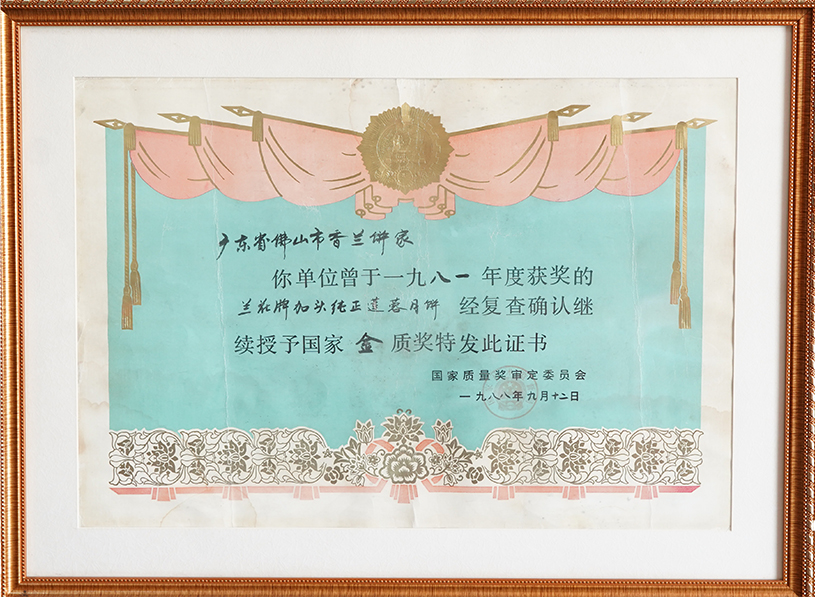 广东省佛山市香兰饼家
你单位曾于一九八一年度获奖的
兰花牌加头纯正莲蓉月饼 经复查确认继
续授予国家 金 质奖特发此证书
国家质量奖审定委员会
一九八八年九月十二日